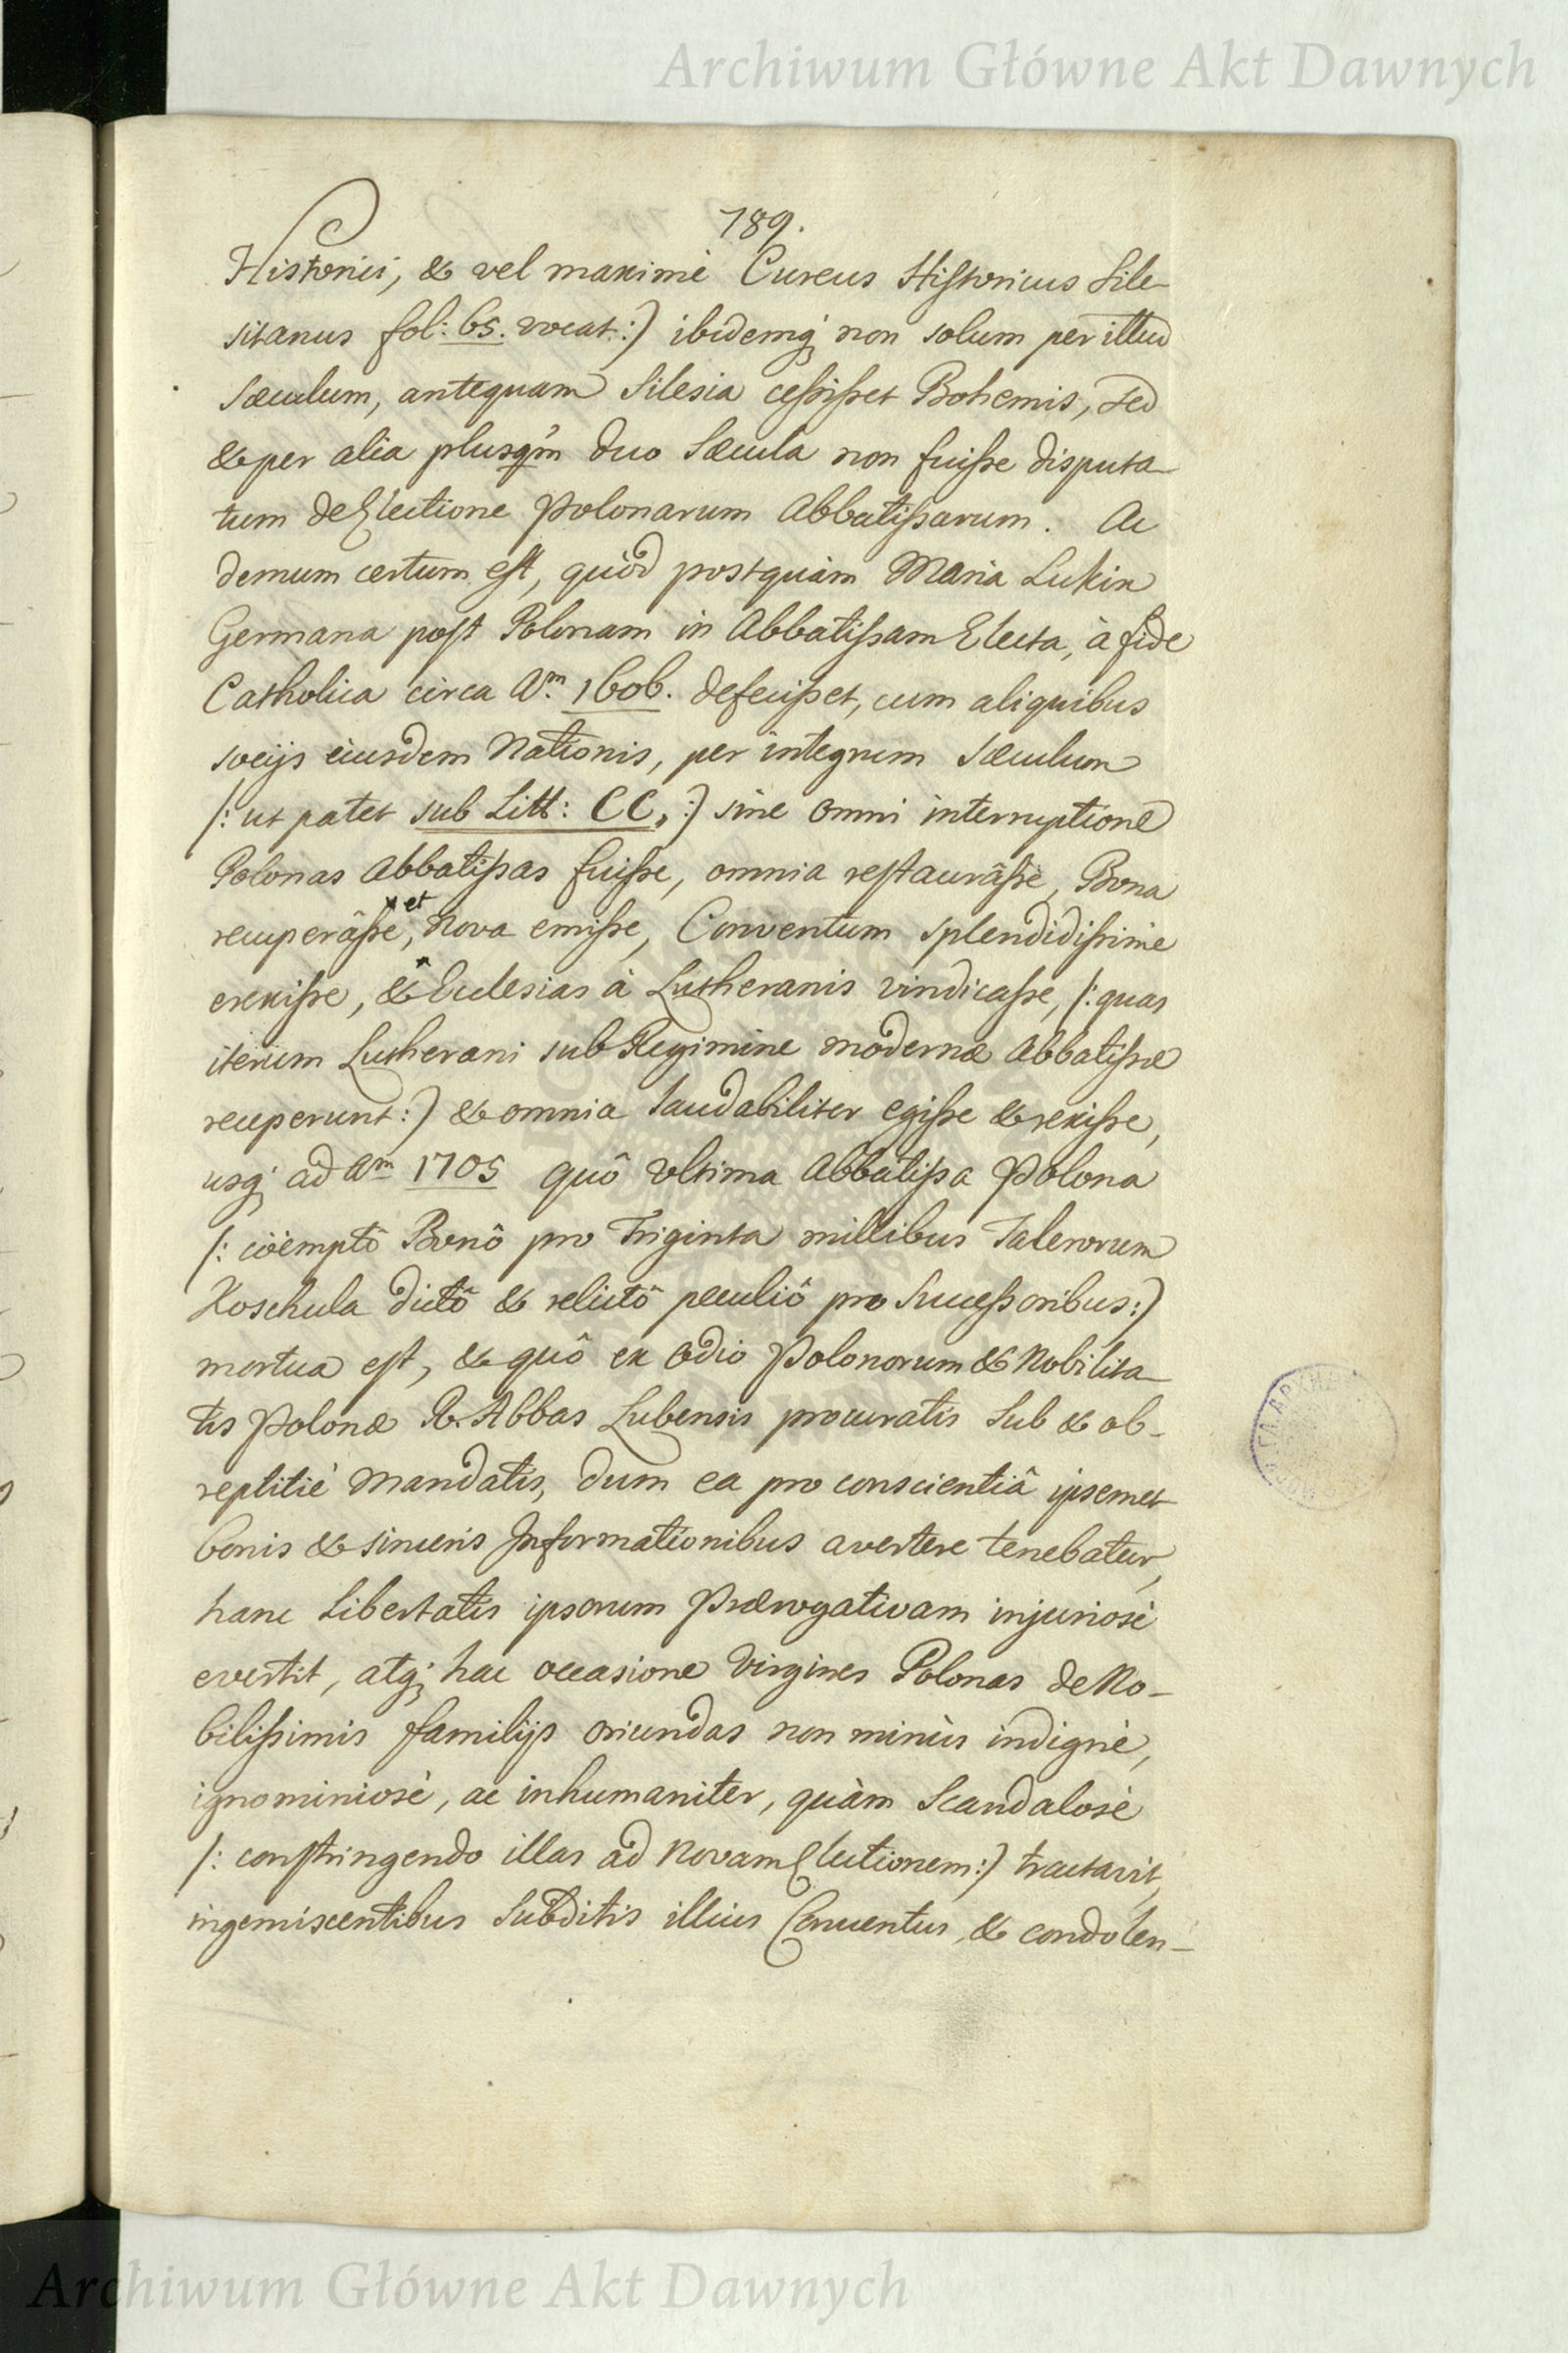 Archiwum Główne Akt Dawnych
789.
Historici, & vel maximè Cureus Historicus Sile-
sitanus fol: 65. vocat:) ibidemq; non solum per illud
Sæculum, antequam Silesia cessisset Bohemis, sed
& per alia plusqm̃ duo Sæcula non fuisse disputa-
tum de Electione Polonarum Abbatissarum. Ac
demum certum est, quòd postquàm Maria Lukin
Germana post Polonam in Abbatissam Electa, à fide
Catholica circa Am 1606. defecisset, cum aliquibus
socijs eiusdem Nationis, per integrum Sæculum
/: ut patet sub Litt: CC, :) sine omni interruptione
Polonas Abbatissas fuisse, omnia restaurâsse, Bona
recuperâsse, et nova emisse, Conventum splendidissime
erexisse, & Ecclesias à Lutheranis vindicasse, /: quas
iterum Lutherani sub Regimine modernæ Abbatissæ
receperunt:) & omnia laudabiliter egisse & rexisse,
usq; ad Am 1705 quô ultima Abbatissa Polona
/: coëmptô Bonô pro Triginta millibus Talerorum
Koschula dictô & relictô peculiô pro Successoribus:)
mortua est, & quô ex odio Polonorum & Nobilita-
tis Polonæ R. Abbas Lubensis procuratis Sub & ob-
reptitiè Mandatis, dum ea pro conscientiâ ipsemet
bonis & sinceris Informationibus avertere tenebatur,
hanc Libertatis ipsorum Prærogativam injuriosè
evertit, atq; hac occasione Virgines Polonas de No-
bilissimis familijs oriundas non minùs indignè,
ignominiosè, ac inhumaniter, quàm Scandalosè
/: constringendo illas ad Novam Electionem:) tractavit,
ingemiscentibus Subditis illius Conventus, & condolen-
Archiwum Główne Akt Dawnych